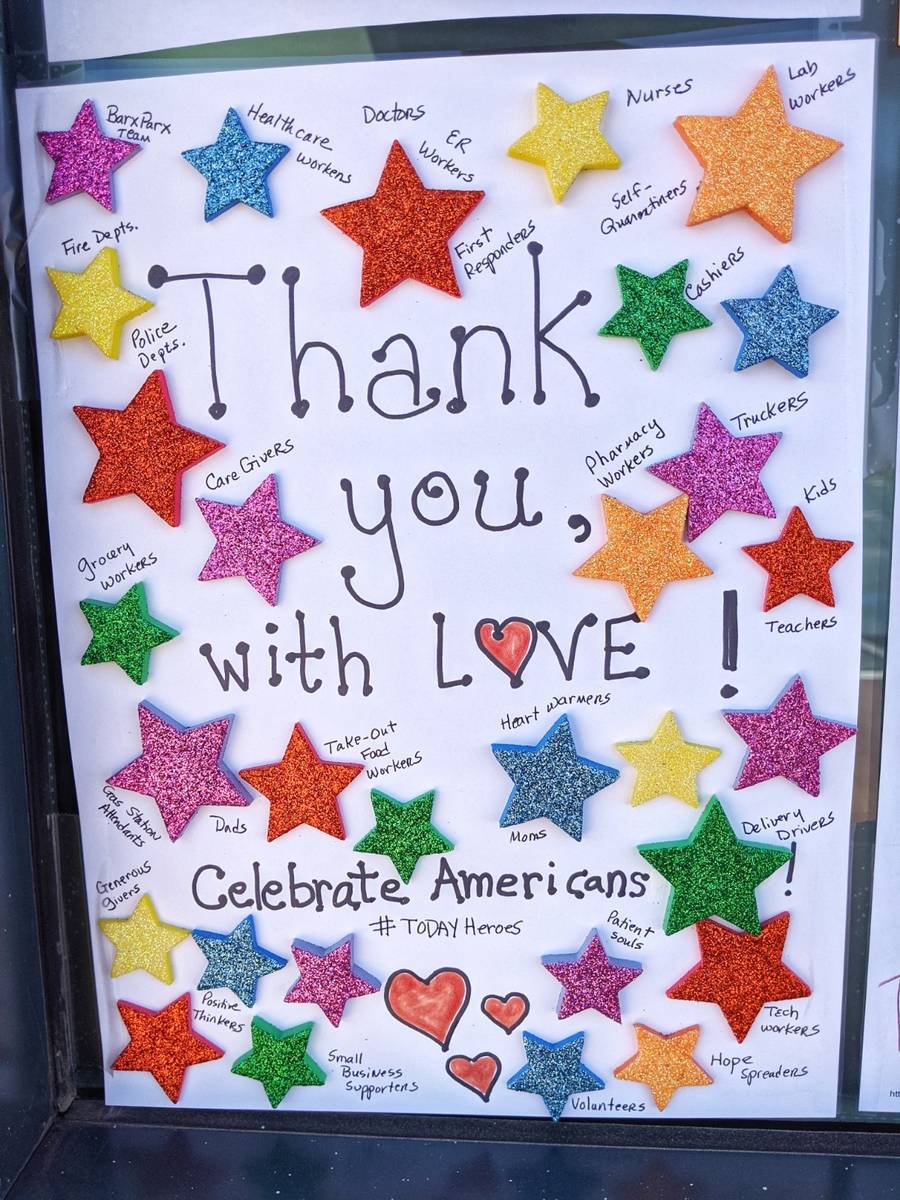 BarxParx
Team
Healthcare
Workers
Doctors
ER
Workers
Nurses
Lab
Workers
Self-
Quarantiners
First
Responders
Fire Depts.
Police
Depts.
Cashiers
Thank
Truckers
Pharmacy
Workers
Care Givers
you,
Kids
Teachers
Grocery
Workers
with LOVE!
Heart Warmers
Moms
Take-Out
Food
Workers
Gas Station
Attendants
Dads
Delivery
Drivers
Celebrate Americans!
#TODAY Heroes
Generous
givers
Patient
Souls
Positive
Thinkers
Tech
Workers
Small
Business
Supporters
Volunteers
Hope
Spreaders